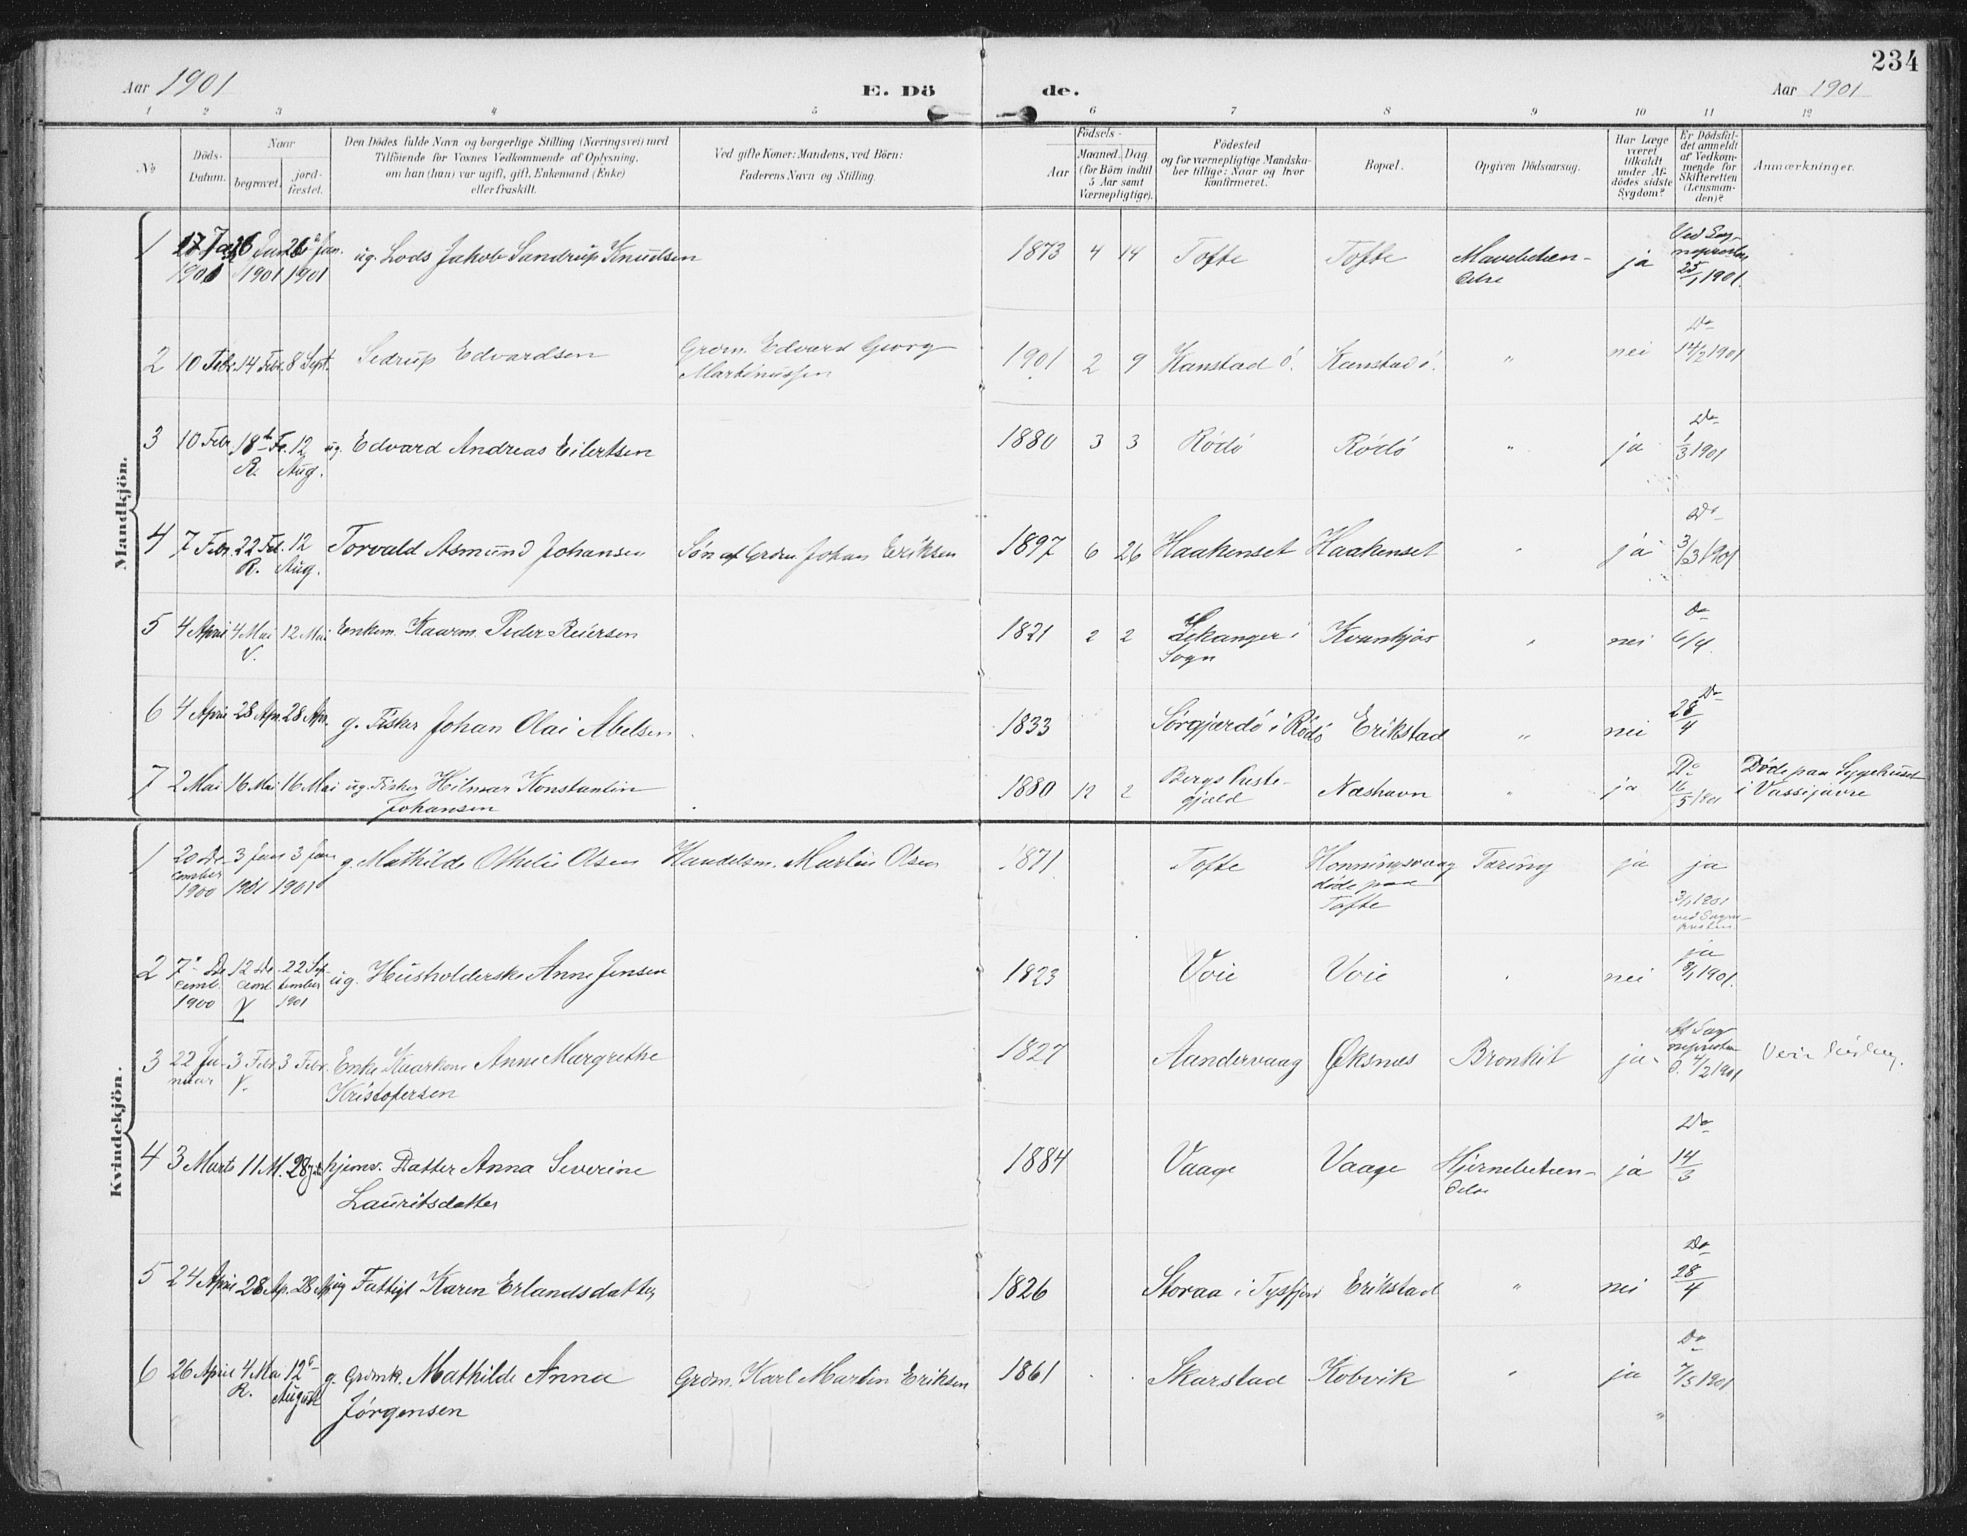 234
Aar 1901
E. Dö de.
Aar 1901
1 2 3 4 5 6 7 8 9 10 11 12
No
Döds-Datum.
Naar
begravet.
jord-fæstet.
Den Dödes fulde Navn og borgerlige Stilling (Næringsvei) med
Tilföiende for Voxnes Vedkommende af Oplysning,
om han (hun) var ugift, gift, Enkemand (Enke)
eller fraskilt.
Ved gifte Koner: Mandens, ved Börn:
Faderens Navn og Stilling.
Födsels-
Aar
Maaned. Dag
(for Börn indtil
5 Aar samt
Værnepligtige).
Födested
og for værnepligtige Mandska-
ber tillige: Naar og hvor
konfirmeret.
Bopæl.
Opgiven Dödsaarsag.
Har Læge
været
tilkaldt
under Af-
dödes sidste
Sygdom?
Er Dödsfal-
det anmeldt
af Vedkom-
mende for
Skifteretten
(Lensman-
den)?
Anmærkninger.
Mandkjön.
1 17 Jan 1901 26 Jan 1901 26 Jan. 1901 ug. Lods Jakob Sandrup Knudsen 1873 4 14 Tofte Tofte Mavebetæn-delse ja Ved Sog-nepresten 25/1 1901.
2 10 Febr. 14 Febr. 8 Sept. Sedrup Edvardsen Grdm. Edvard Georg Martinussen 1901 2 9 Kanstad ö. Kanstad ö. " nei Do 14/2 1901
3 10 Febr. 18de Fe. R. 12 Aug. ug. Edvard Andreas Eilertsen 1880 3 3 Rödö Rödö " ja Do 1/3 1901
4 7 Febr. 22 Feb. R. 12 Aug. Torvald Asmund Johansen Sön af Grdm. Johan Eriksen 1897 6 26 Haakenset Haakenset " ja Do 3/3 1901
5 4 April 4 Mai V. 12 Mai Enkem. Kaarm. Peder Reiersen 1821 2 2 Lekanger i Sogn Kvankjös " nei Do 6/4.
6 4 April 28 Apr. 28 Apr. g. Fisker Johan Olai Abelsen 1833 Sörgjærdö i Rödö Erikstad " nei Do 28/4
7 2 Mai 16 Mai 16 Mai ug. Fisker Hilmar Konstantin Johansen 1880 12 2 Bergs Præste-gjæld Næshavn " ja Do 16/5 1901 Döde paa Sygehuset i Vassijaure
Kvindekjön.
1 20 De-cember 1900 3 Jan 1901 3 Jan 1901 g. Mathilde Othelie Olsen Handelsm. Martin Olsen 1871 Tofte Honningsvaag döde paa Tofte Tæring ja ja 3/1 1901 ved Sogne-presten
2 7 De-cemb. 1900 12 De-cemb. V 22 Sep-tember 1901 ug. Husholderske Anne Jensen 1823 Voie Voie " nei ja 8/1 1901.
3 22 Ja-nuar 3 Febr. V. 3 Febr. Enke Kaarkone Anne Margrethe Kristofersen 1827 Aandervaag Öksnes Bronkit ja 4/2 1901
4 3 Marts 11 M. 28 hjemv. Datter Anna Severine Lauritsdatter 1884 Vaage Vaage Hjernebetæn-delse ja Do 14/3
5 24 April 28 Ap. 28 Ap. ug Fattigl Karen Erlandsdatter 1826 Storaa i Tysfjord Erikstad " nei Do 28/4
6 26 April 4 Mai R. 12 August g. Grdmk. Mathilde Anna Jörgensen Grdm. Karl Martin Eriksen 1861 Skarstad Kobvik " ja Do 7/5 1901